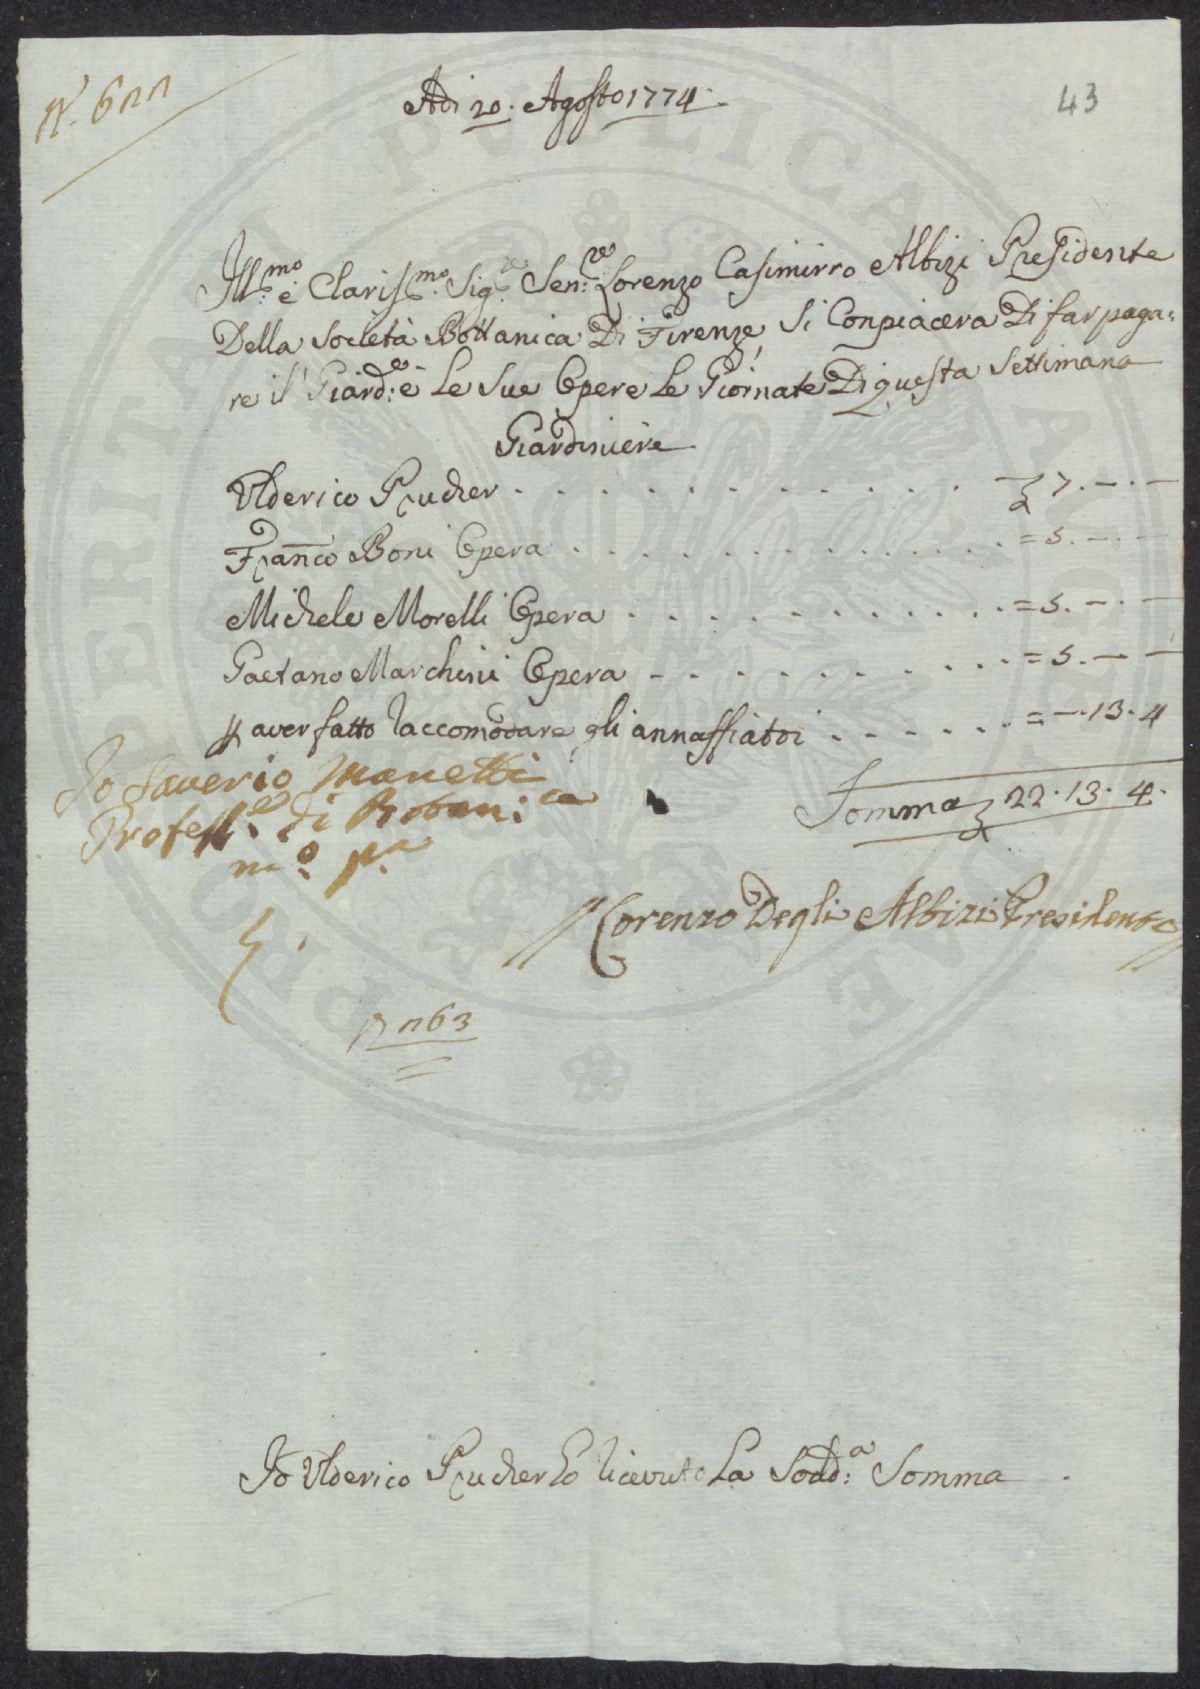 N.° 622
Adi 20. Agosto 1774.
43
Ill:mo e Clariss:mo Sig:re Sen:re Lorenzo Casimirro Albizi Presidente
Della Società Bottanica Di Firenze, Si Conpiacera Di far paga=
re il Giard:e e Le Sue Opere Le Giornate Di questa Settimana
Giardiniere
Ulderico Prucher . . . . . . . . . . . . 7. — . —
Fran̄co Boni Opera . . . . . . . . . . . . = 5. — . —
Michele Morelli Opera . . . . . . . . . . = 5. — . —
Gaetano Marchini Opera . . . . . . . . . = 5. — —
p aver fatto raccomodare gli annaffiatoi . . . . . . = — . 13. 4
Somma 22. 13. 4.
Io Saverio Manetti
Profess:e di Botan:ca
m:o p:a
Lorenzo Degli Albizi Presidente
1763
Io Ulderico Prucher Ho ricevuto La Sodd:a Somma
PERITAT PUBLICAE